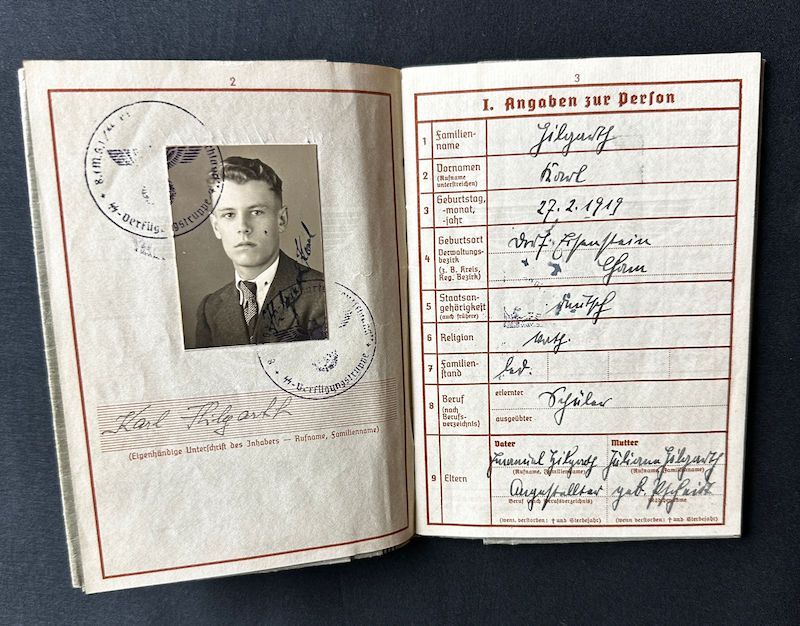 2
SS-Verfügungstruppe
SS-Verfügungstruppe
Karl Hilgarth
(Eigenhändige Unterschrift des Inhabers — Rufname, Familienname)
3
I. Angaben zur Person
1 Familien-
name
Hilgarth
2 Vornamen
(Rufname
unterstreichen)
Karl
3 Geburtstag,
-monat,
-jahr
27. 2. 1919
4 Geburtsort
Verwaltungs-
bezirk
(z. B. Kreis,
Reg. Bezirk)
Dorf Eisenstein
Cham
5 Staatsan-
gehörigkeit
(auch frühere)
deutsch
6 Religion
kath.
7 Familien-
stand
led.
8 Beruf
(nach
Berufs-
verzeichnis)
erlernter
Schüler
ausgeübter
9 Eltern
Vater
Emanuel Hilgarth
(Rufname, Familienname)
Angestellter
Beruf (nach Berufsverzeichnis)
(wenn verstorben: † und Sterbejahr)
Mutter
Juliana Hilgarth
(Rufname, Familienname)
geb.
Mädchenname
(wenn verstorben: † und Sterbejahr)